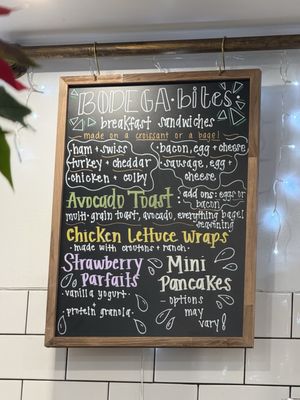 BODEGA·bites
breakfast sandwiches
made on a croissant or a bagel
ham + swiss
turkey + cheddar
chicken + colby
bacon, egg + cheese
sausage, egg +
cheese
Avocado Toast
add ons: eggs or
bacon
multi-grain toast, avocado, everything bagel
seasoning
Chicken Lettuce Wraps
made with croutons + ranch
Strawberry
Parfaits
vanilla yogurt
+
protein granola
Mini
Pancakes
options
may
vary!